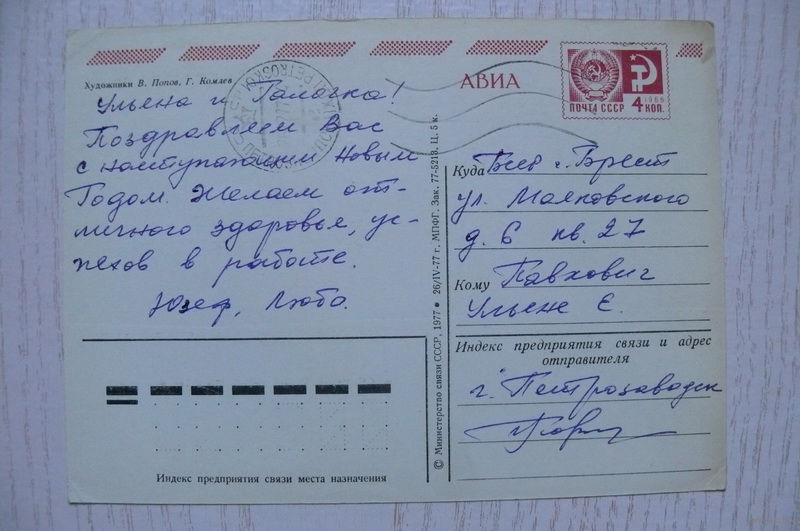 Художники В. Попов, Г. Комлев
АВИА
ПОЧТА СССР
1966
4 КОП.
PETROSKOI
Ульяна и Галочка!
Поздравляем Вас
с наступающим Новым
Годом. Желаем от-
личного здоровья, ус-
пехов в работе.
Юзеф, Люба.
© Министерство связи СССР, 1977 • 26/IV-77 г. МПФГ. Зак. 77-5213. Ц. 5 к.
Куда г. Брест
ул. Маяковского
д. 6 кв. 27
Кому Павхович
Ульяне Е.
Индекс предприятия связи и адрес
отправителя
г. Петрозаводск
Индекс предприятия связи места назначения